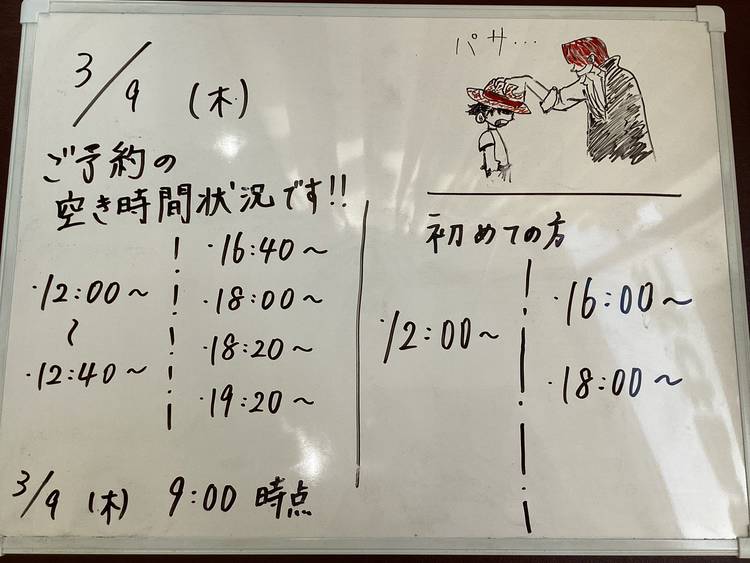 3/9 (木)
パサ…
ご予約の
空き時間状況です!!
・12:00〜
〜
・12:40〜
・16:40〜
・18:00〜
・18:20〜
・19:20〜
初めての方
・12:00〜
・16:00〜
・18:00〜
3/9 (木) 9:00 時点